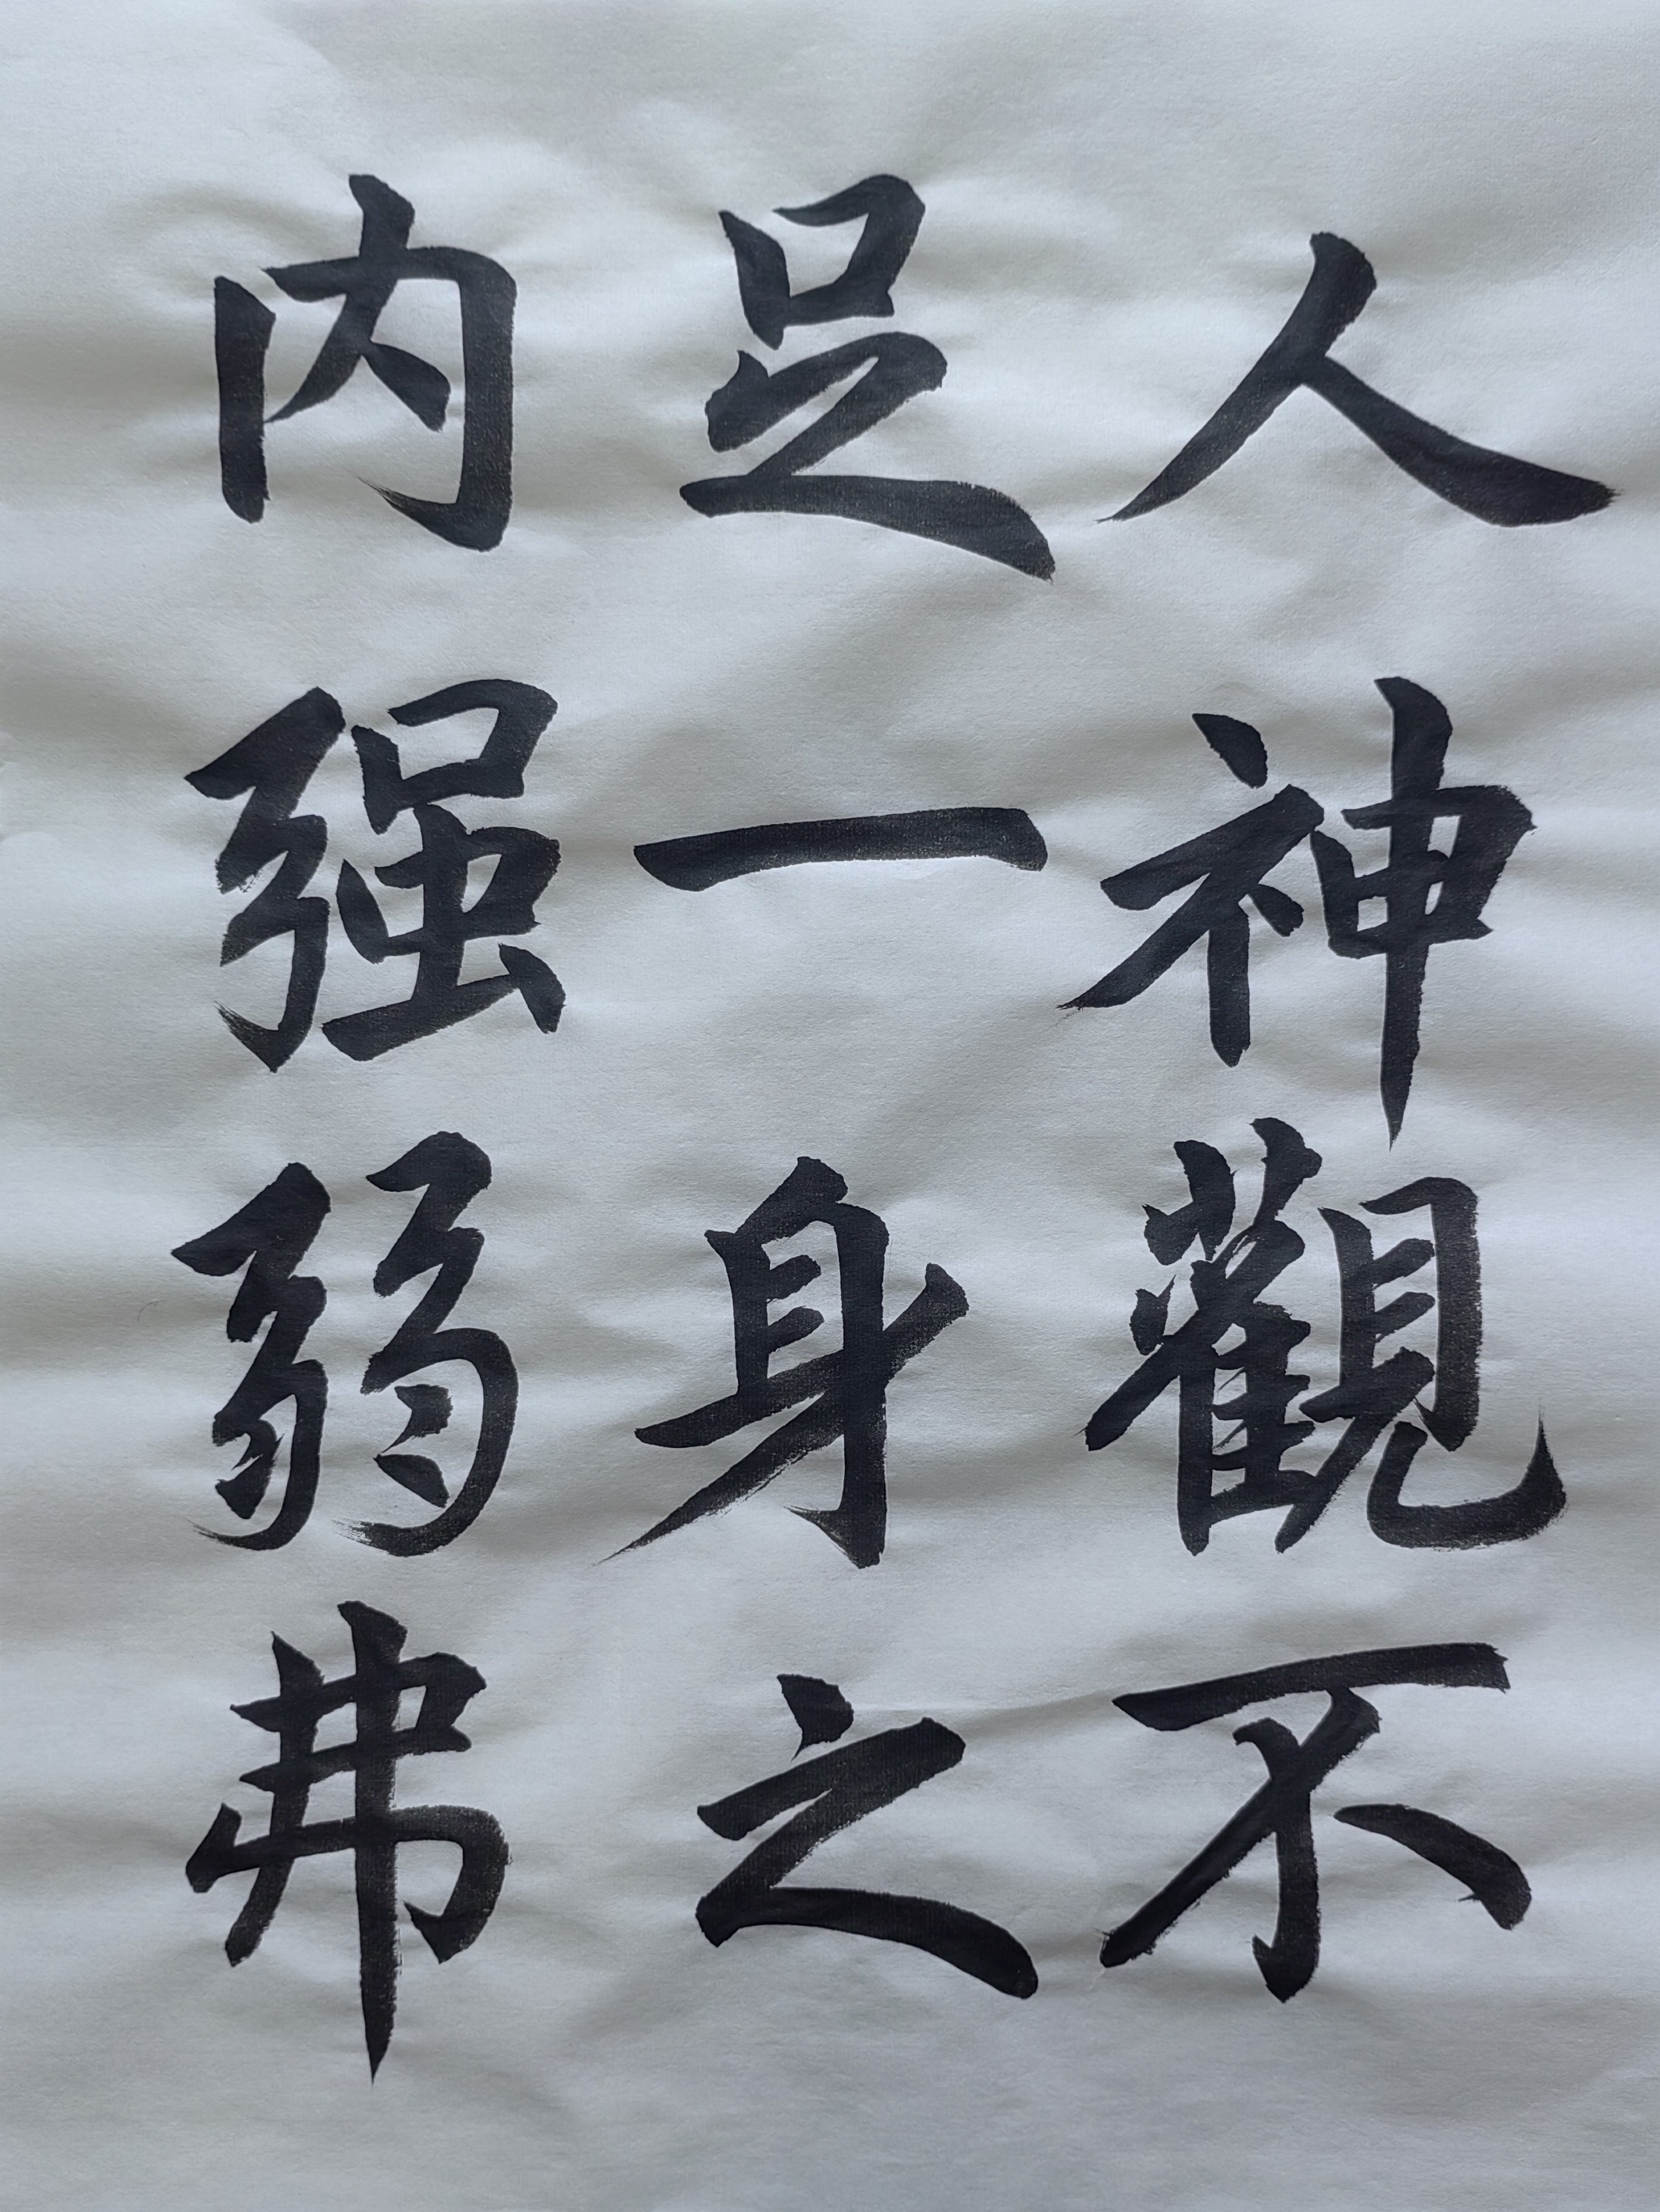 人神觀不
足一身之
内强弱弗